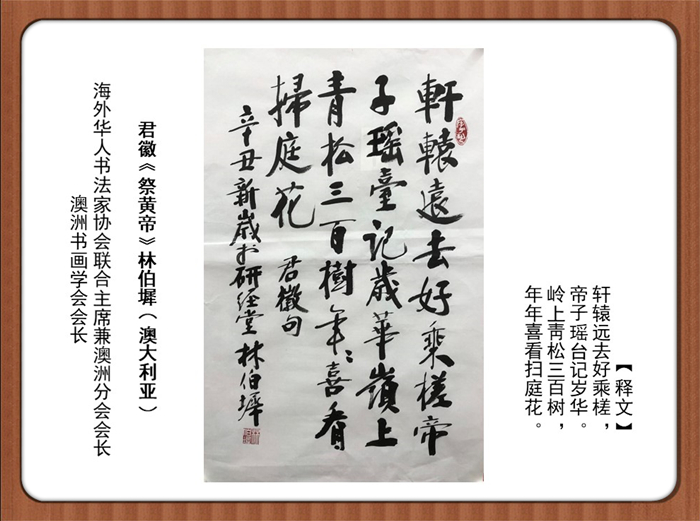 【释文】
轩辕远去好乘槎，
帝子瑶台记岁华。
岭上青松三百树，
年年喜看扫庭花。
軒轅遠去好乘槎帝
子瑶臺记歲華嶺上
青松三百樹年〻喜看
掃庭花 君徽句
辛丑新歲於研经堂 林伯墀
君徽《祭黄帝》林伯墀（澳大利亚）
海外华人书法家协会联合主席兼澳洲分会会长
澳洲书画学会会长